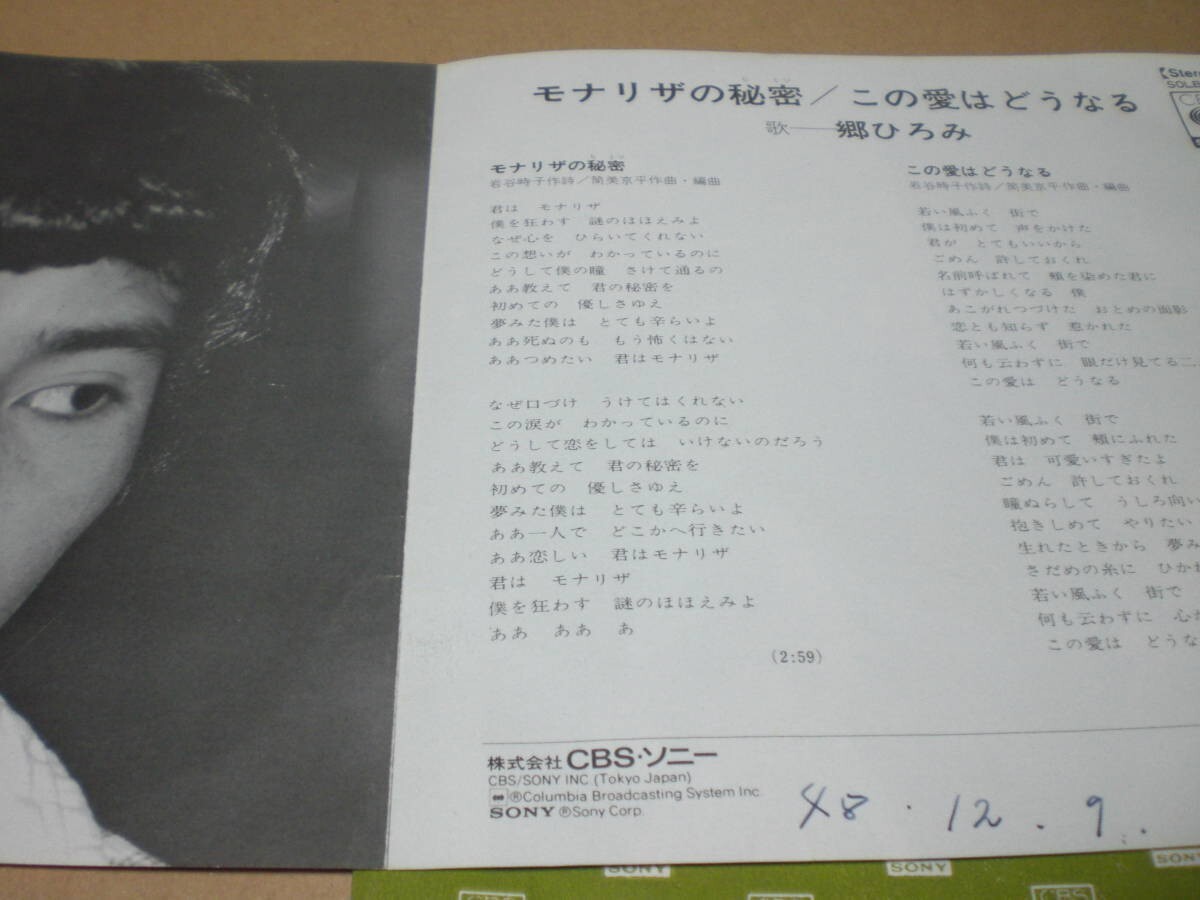 モナリザの秘密/この愛はどうなる
歌——郷ひろみ
モナリザの秘密
岩谷時子作詩/筒美京平作曲・編曲
君は モナリザ
僕を狂わす 謎のほほえみよ
なぜ心を ひらいてくれない
この想いが わかっているのに
どうして僕の瞳 さけて通るの
ああ教えて 君の秘密を
初めての 優しさゆえ
夢みた僕は とても辛らいよ
ああ死ぬのも もう怖くはない
ああつめたい 君はモナリザ
なぜ口づけ うけてはくれない
この涙が わかっているのに
どうして恋をしては いけないのだろう
ああ教えて 君の秘密を
初めての 優しさゆえ
夢みた僕は とても辛らいよ
ああ一人で どこかへ行きたい
ああ恋しい 君はモナリザ
君は モナリザ
僕を狂わす 謎のほほえみよ
ああ ああ あ
(2:59)
この愛はどうなる
岩谷時子作詩/筒美京平作曲・編曲
若い風ふく 街で
僕は初めて 声をかけた
君が とてもいいから
ごめん 許しておくれ
名前呼ばれて 頬を染めた君に
はずかしくなる 僕
あこがれつづけた おとめの面影
恋とも知らず 惹かれた
若い風ふく 街で
何も云わずに 眼だけ見てる二
この愛は どうなる
若い風ふく 街で
僕は初めて 頬にふれた
君は 可愛いすぎたよ
ごめん 許しておくれ
瞳ぬらして うしろ向い
抱きしめて やりたい
生れたときから 夢み
さだめの糸に ひかれ
若い風ふく 街で
何も云わずに 心だ
この愛は どうな
株式会社 CBS・ソニー
CBS/SONY INC (Tokyo Japan)
®Columbia Broadcasting System Inc.
SONY ®Sony Corp.
48.12.9.
SONY
SONY
SONY
CBS
CBS